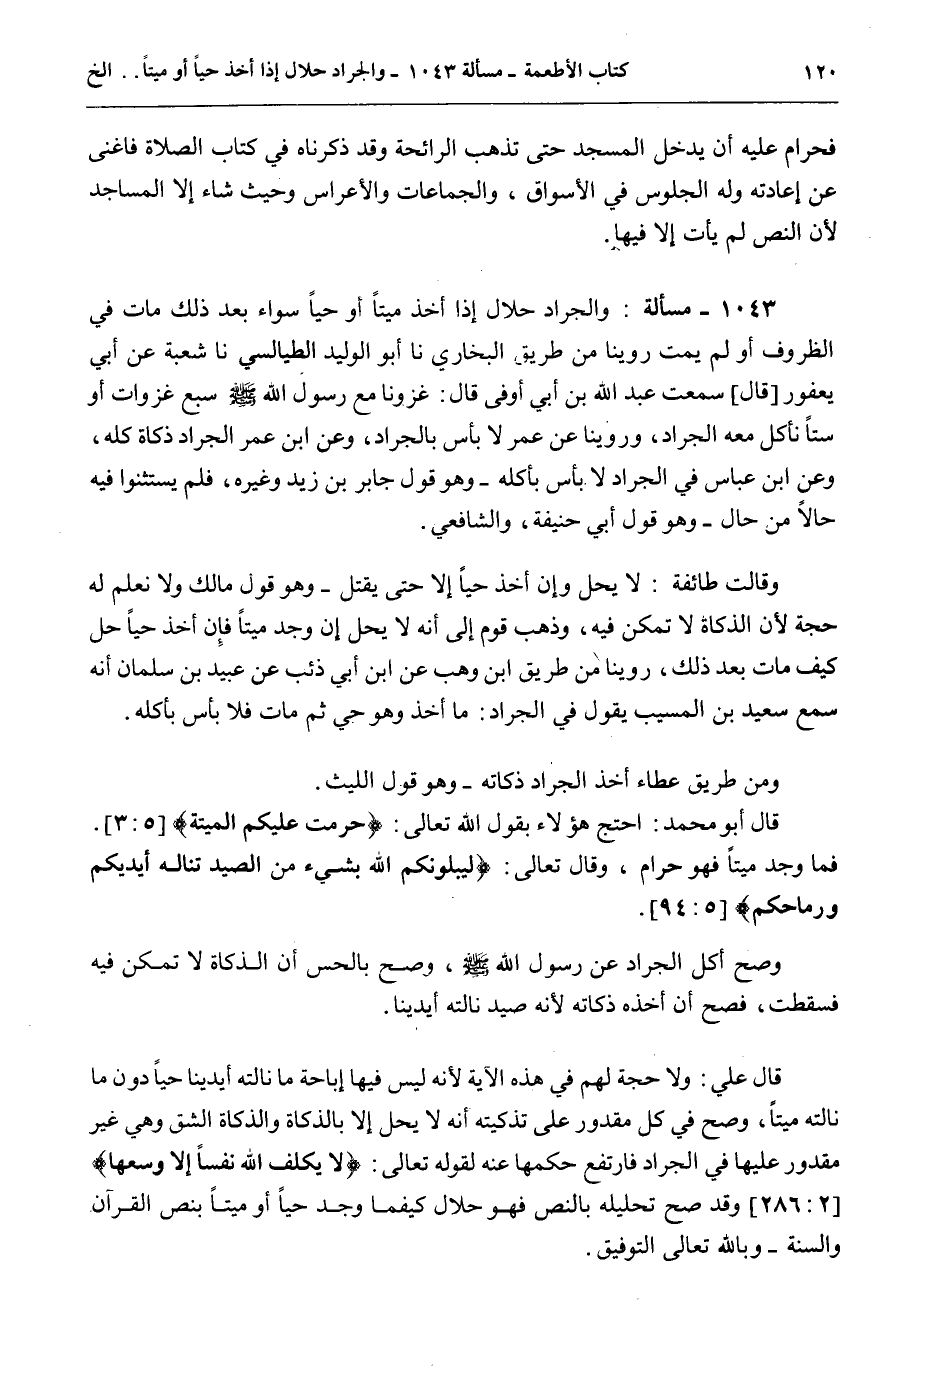 ١٢٠ كتاب الأطعمة ـ مسألة ١٠٤٣ ـ والجراد حلال إذا أخذ حياً أو ميتاً . . الخ
فحرام عليه أن يدخل المسجد حتى تذهب الرائحة وقد ذكرناه في كتاب الصلاة فاغنى
عن إعادته وله الجلوس في الأسواق ، والجماعات والأعراس وحيث شاء إلا المساجد
لأن النص لم يأت إلا فيها.
١٠٤٣ ـ مسألة : والجراد حلال إذا أخذ ميتاً أو حياً سواء بعد ذلك مات في
الظروف أو لم يمت روينا من طريق البخاري نا أبو الوليد الطيالسي نا شعبة عن أبي
يعفور [قال] سمعت عبد الله بن أبي أوفى قال: غزونا مع رسول الله ﷺ سبع غزوات أو
ستاً نأكل معه الجراد، وروينا عن عمر لا بأس بالجراد، وعن ابن عمر الجراد ذكاة كله،
وعن ابن عباس في الجراد لا بأس بأكله ـ وهو قول جابر بن زيد وغيره، فلم يستثنوا فيه
حالاً من حال ـ وهو قول أبي حنيفة، والشافعي.
وقالت طائفة : لا يحل وإن أخذ حياً إلا حتى يقتل ـ وهو قول مالك ولا نعلم له
حجة لأن الذكاة لا تمكن فيه، وذهب قوم إلى أنه لا يحل إن وجد ميتاً فإن أخذ حياً حل
كيف مات بعد ذلك، روينا من طريق ابن وهب عن ابن أبي ذئب عن عبيد بن سلمان أنه
سمع سعيد بن المسيب يقول في الجراد: ما أخذ وهو حي ثم مات فلا بأس بأكله.
ومن طريق عطاء أخذ الجراد ذكاته ـ وهو قول الليث.
قال أبو محمد: احتج هؤلاء بقول الله تعالى: ﴿حرمت عليكم الميتة﴾ [٣:٥].
فما وجد ميتاً فهو حرام ، وقال تعالى: ﴿ليبلونكم الله بشيء من الصيد تناله أيديكم
ورماحكم﴾ [٩٤:٥].
وصح أكل الجراد عن رسول الله ﷺ ، وصح بالحس أن الذكاة لا تمكن فيه
فسقطت، فصح أن أخذه ذكاته لأنه صيد نالته أيدينا.
قال علي: ولا حجة لهم في هذه الآية لأنه ليس فيها إباحة ما نالته أيدينا حياً دون ما
نالته ميتاً، وصح في كل مقدور على تذكيته أنه لا يحل إلا بالذكاة والذكاة الشق وهي غير
مقدور عليها في الجراد فارتفع حكمها عنه لقوله تعالى: ﴿لا يكلف الله نفساً إلا وسعها﴾
[٢٨٦:٢] وقد صح تحليله بالنص فهو حلال كيفما وجد حياً أو ميتاً بنص القرآن
والسنة ـ وبالله تعالى التوفيق.